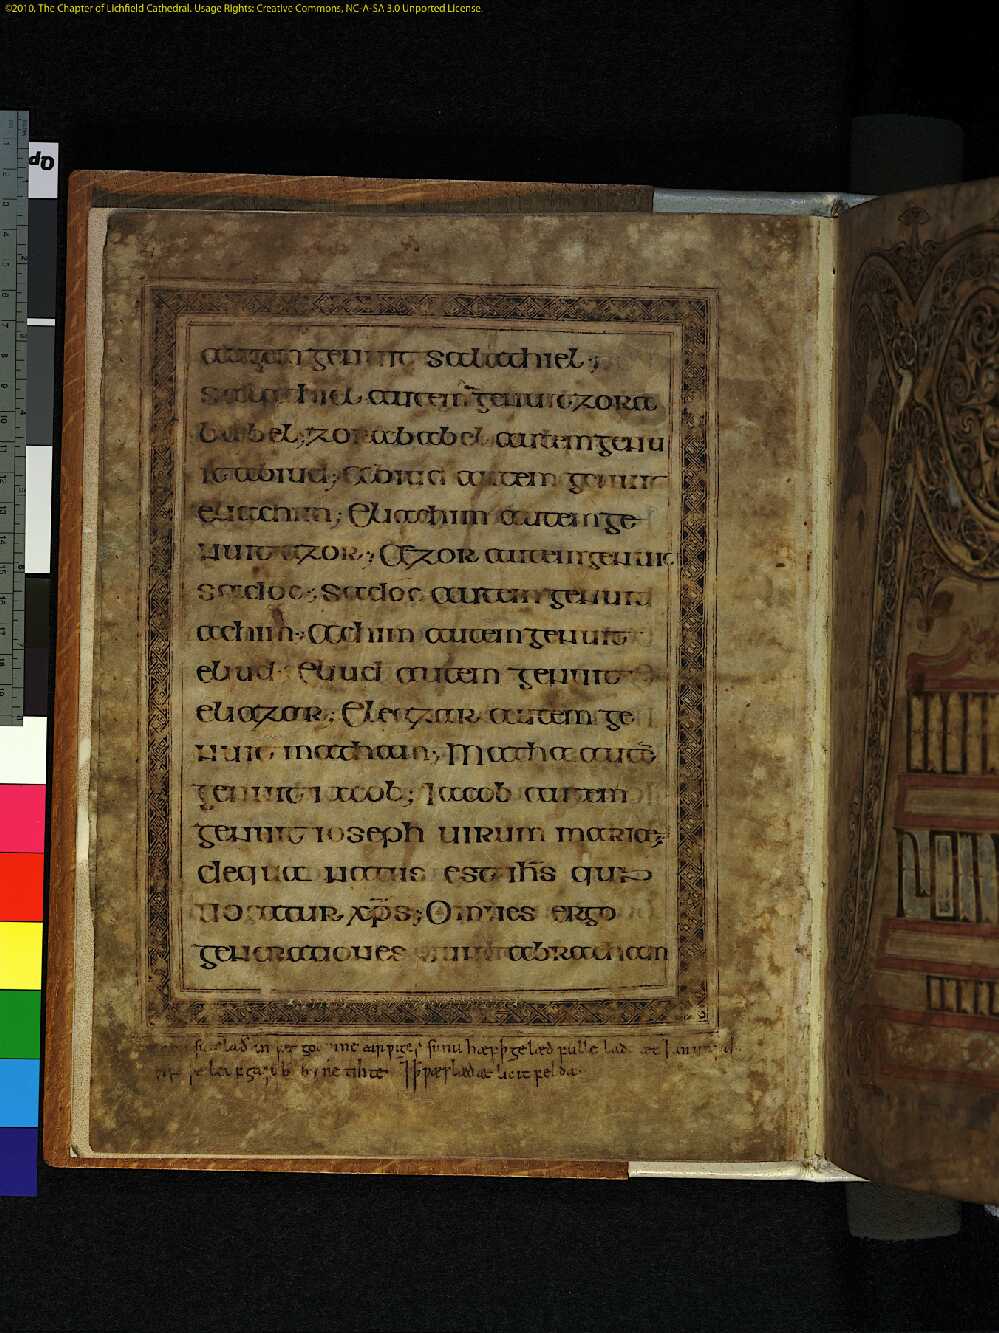 ©2010, The Chapter of Lichfield Cathedral. Usage Rights: Creative Commons, NC-A-SA 3.0 Unported License.
autem genuit salathiel;
salathiel autem genuit zora
babel; zorababel autem genu
it abiud; Abiud autem genuit
eliachim; Eliachim autem ge
nuit azor; Azor autem genuit
sadoc; sadoc autem genuit
achim; Achim autem genuit
eliud Eliud autem genuit
eliazar; Eleazar autem ge
nuit mathan; Mathā autē
genuit iacob; Iacob autem
genuit ioseph uirum mariae
de qua natus est ih̅s qui
uocatur xp̅s; Omnes ergo
generationes abracham
godwine earwiges sunu hæfþ gelæd fulle lade æt
hine tihte ⁊ þ wæs læd æt licitfelda